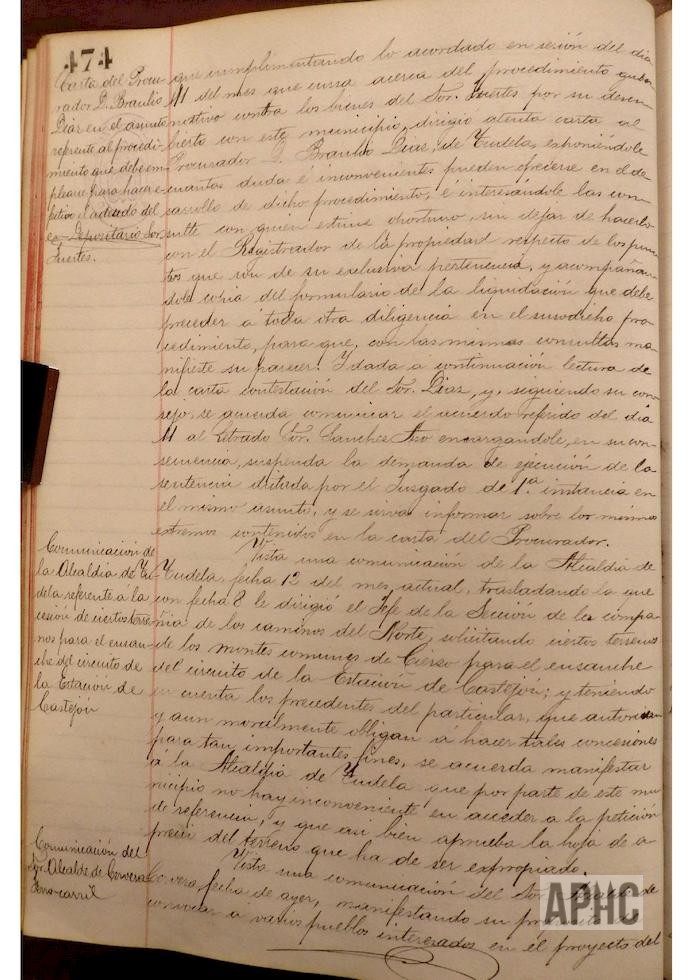 474
Carta del Procu-
rador D. Braulio
Diaz en el asunto
referente al procedi-
miento que debe em-
plearse para hacer e-
fectivo el adeudo del
ex-Depositario Sor.
Fuertes.
que cumplimentando lo acordado en sesión del dia
11 del mes que cursa acerca del procedimiento guber-
nativo contra los bienes del Sor. Fuertes por su descu-
bierto con este municipio, dirigió atenta carta al
Procurador D. Braulio Diaz, de Tudela, exponiéndole
cuantas duda é inconvenientes pueden ofrecerse en el de-
sarrollo de dicho procedimiento, é interesándole las con-
sulte con quien estime oportuno, sin dejar de hacerlo
con el Registrador de la propiedad respecto de los pun-
tos que son de su exclusiva pertinencia, y acompañan-
dole copia del formulario de la liquidación que debe
preceder á toda otra diligencia en el susodicho pro-
cedimiento, para que, con las mismas consultas ma-
nifieste su parecer. Y dada a continuación lectura de
la carta contestación del Sor. Diaz, y, siguiendo su con-
sejo, se acuerda comunicar el acuerdo referido del dia
11 al letrado Sor. Sanchez encargandole, en su con-
secuencia, suspenda la demanda de ejecución de la
sentencia dictada por el Juzgado de 1.ª instancia en
el mismo asunto, y se sirva informar sobre los mismos
extremos contenidos en la carta del Procurador.
Comunicación de
la Alcaldia de Tu-
dela referente á la
cesión de ciertos terre-
nos para el ensan-
che del circuito de
la Estación de
Castejón
Vista una comunicación de la Alcaldia de
Tudela, fecha 13 del mes actual, trasladando la que
con fecha 8 le dirigió el Jefe de la Sección de la compa-
ñia de los caminos del Norte, solicitando ciertos terrenos
de los montes comunes de Cierzo para el ensanche
del circuito de la Estación de Castejón; y teniendo
en cuenta los precedentes del particular, que autorizan
y aun moralmente obligan á hacer tales concesiones
para tan importantes fines, se acuerda manifestar
á la Alcaldia de Tudela que por parte de este mu-
nicipio no hay inconveniente en acceder a la petición
de referencia, y que asi bien aprueba la hoja de a-
precio del terreno que ha de ser expropiado.
Comunicación del
Sor. Alcalde de Cervera
Ferrocarril
Vista una comunicación del Sor. Alcalde de
Cervera, fecha de ayer, manifestando su
convocar á varios pueblos interesados en el proyecto del
APHC